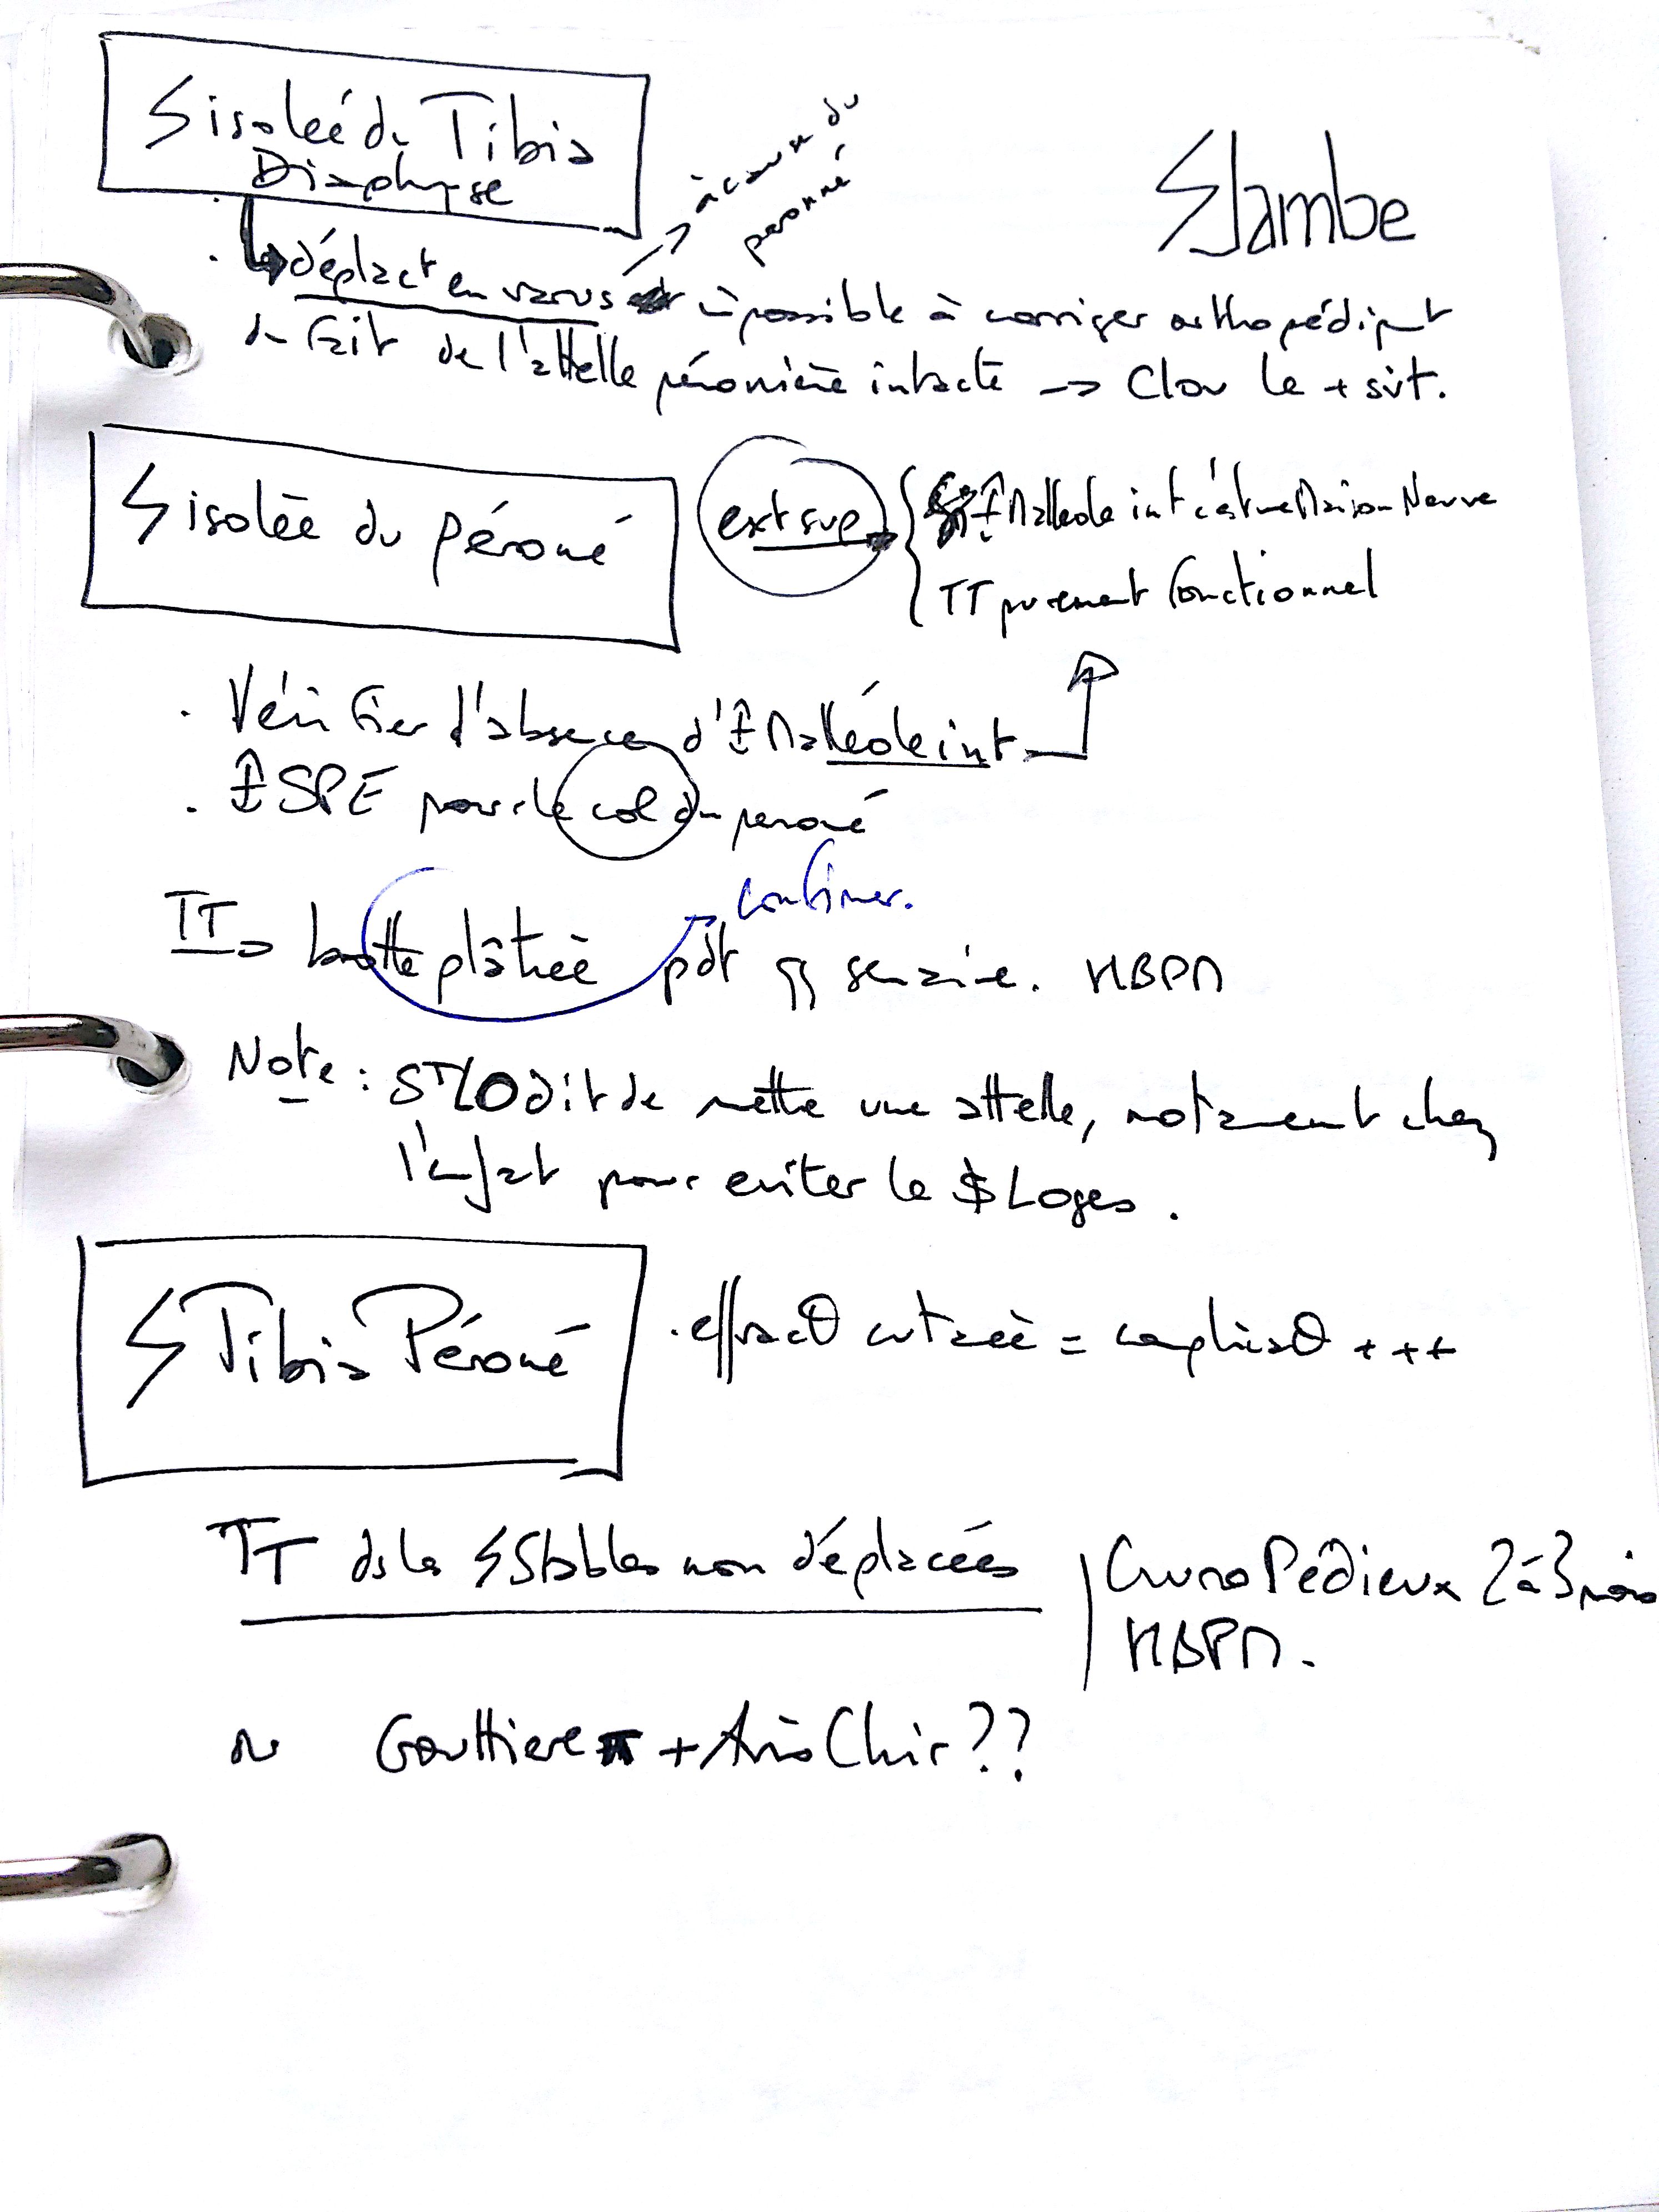 isolée du Tibia
Diaphyse
à cause du
peronné
Jambe
déplact en varus impossible à corriger orthopédiqt
du fait de l'attelle péronière intacte → Clou le + svt.
isolée du péroné
ext sup
Malleole int c'est une Maison Neuve
TT purement fonctionnel
. Vérifier l'absence d' Malléole int
. SPE pour le col du peroné
confirmer.
TT botte plâtrée pdt qq semaine. HBPM
Note : dit de mettre une attelle, notament chez
l'enfat pour eviter le $ Loges.
Tibia Péroné
. effracθ cutaée = complicaθ +++
TT ds les Stables non déplacées
CruroPédieux 2 à 3 mois
HBPM.
Gouttiere + Avis Chir ??